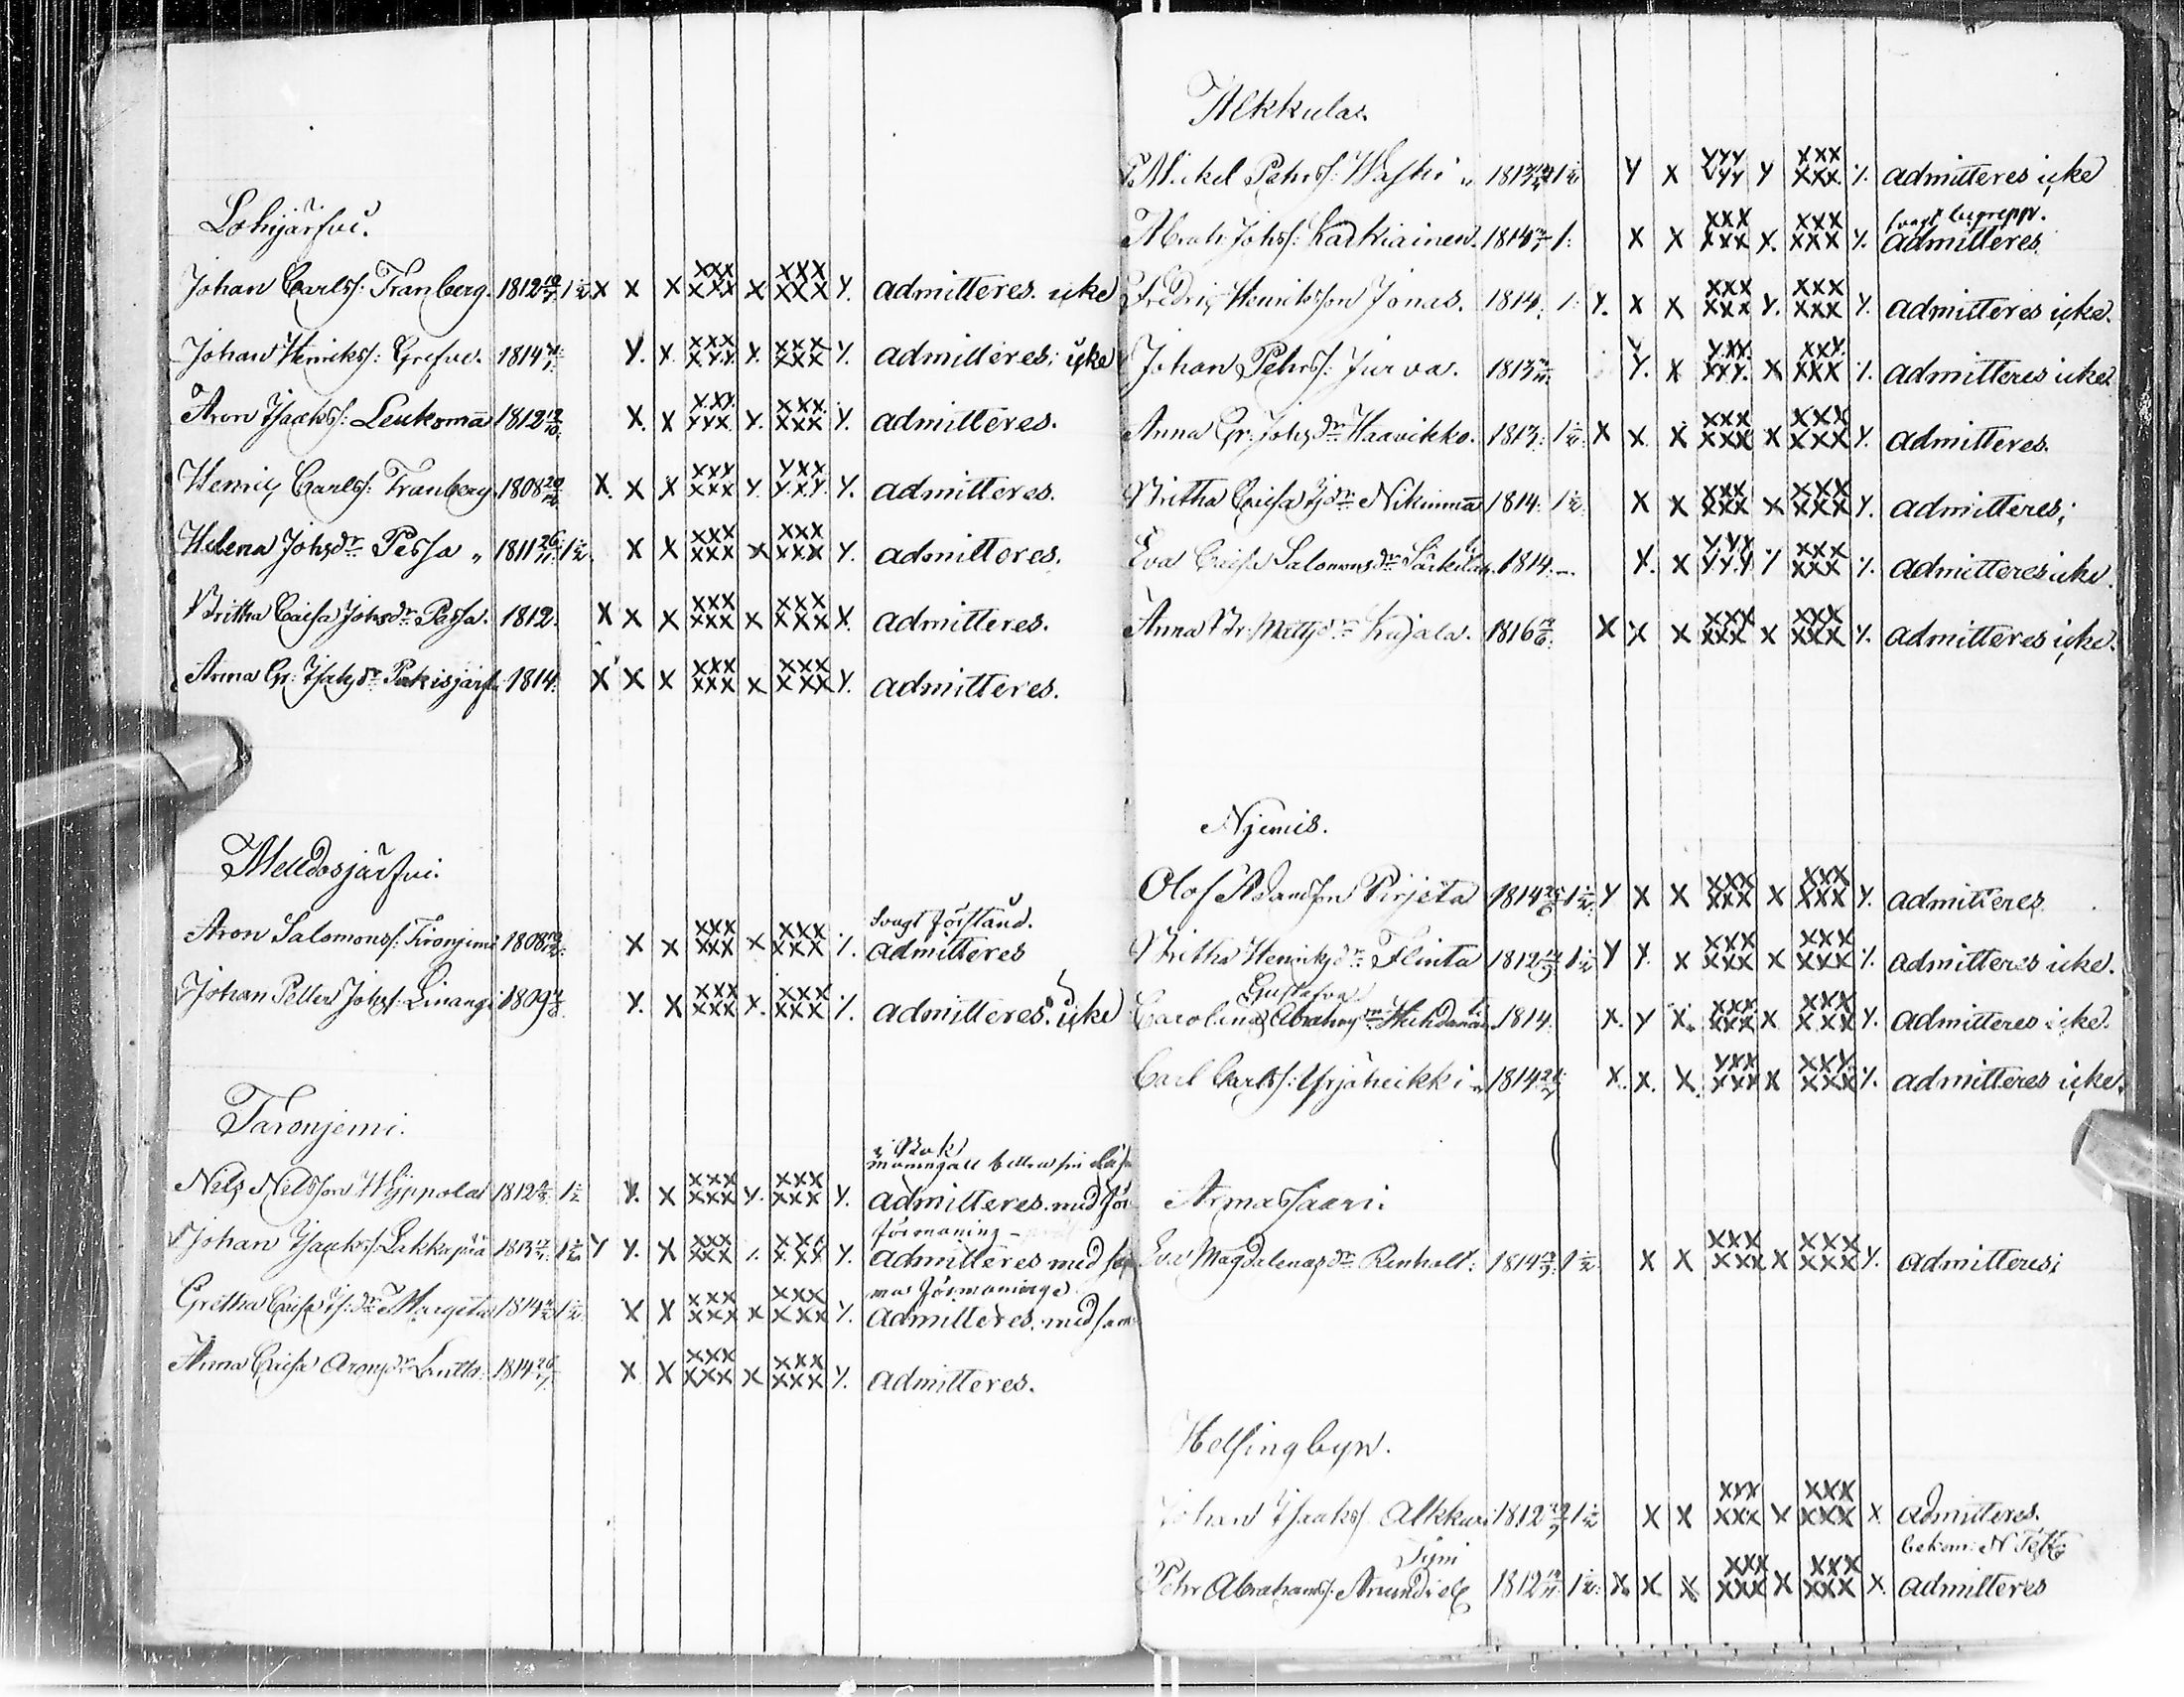 Lohijärfvi.
Johan Carlss: Tranberg. 1812 1 1/2 x x x xxx xxx x xxx xxx x. admitteres. icke
Johan Henrikss: Grefve. 1814 x. x. xxx xxx x. xxx xxx x. admitteres; icke
Aron Isaakss: Leukoma 1812 12/10 x. x xxx xxx x. xxx xxx x. admitteres.
Henric Carlss: Tranberg 1808 x. x x xxx xxx x xxx xxx x. admitteres.
Helena Johsdr Pessa „ 1811 1 1/2. x x xxx xxx x xxx xxx x. admitteres.
Britha Caisa Johsdr Pessa. 1812. x x x xxx xxx x xxx xxx x. admitteres.
Anna Gr: Isaksdr Pakisjärf 1814. x x x xxx xxx x xxx xxx x. admitteres.
Melldosjärfvi.
svagt förstånd.
Aron Salomonss: 1808 x x xxx xxx x xxx xxx x. admitteres
Johan Petter Johss: Linangi 1809 x. x xxx xxx x. xxx xxx x. admitteres. icke
Taronjemi.
i Bok
Nils Nilsson Wyppola 1812 1 1/2 x. x xxx xxx x. xxx xxx x. admitteres. med för
förmaning –
Johan Isaakss: Lakkapää 1813 1 1/2 x x. x xxx xxx x. xxx xxx x. admitteres med sam
ma förmaninge
Gretha Caisa Is:dr Margeta 1814 1 1/2 x x xxx xxx x xxx xxx x. admitteres. med sam
Anna Caisa Aronsdr Lautta 1814 x x xxx xxx x xxx xxx x. admitteres.
Alkkula.
Mickel Pehrss: „ 1813 1 1/2 x x xxx xxx x xxx xxx x. admitteres icke
svagt begrepp.
Abrah: Johss: Karkiainen. 1814 1: x x xxx xxx x. xxx xxx x. admitteres.
Fredric Henriksson Jonas. 1814. 1: x. x x xxx xxx x. xxx xxx x. admitteres icke.
Johan Pehrss: Jurva. 1813 x. x xxx xxx x xxx xxx x. admitteres icke.
Anna Gr: Johsdr Haavikko. 1813. 1 1/2 x x. x xxx xxx x xxx xxx x. admitteres.
Britha Caisa Isdr Nikumaa 1814. 1 1/2 x x xxx xxx x xxx xxx x. admitteres;
Eva Caisa Salomonsdr Särkilax. 1814. – x. x xxx xxx x xxx xxx x. admitteres icke.
Anna Br: Mattsdr Kujala. 1816 x x x xxx xxx x xxx xxx x. admitteres icke.
Njemis.
Olof Adamsson Pirjeta 1814 1 1/2 x x x xxx xxx x xxx xxx x. admitteres.
Britha Henriksdr Flinta 1812 1 1/2 x x. x xxx xxx x xxx xxx x. admitteres icke.
Gustafva
Carolina Abrahamsdr 1814 x. x x. xxx xxx x xxx xxx x. admitteres icke.
Carl Carlss: Yrjäheikki „ 1814 x. x. x xxx xxx x xxx xxx x. admitteres icke.
Armassaari.
Eva Magdalena dr Renholt: 1814 1 1/2 x x xxx xxx x xxx xxx x. admitteres;
Helsingbyn.
Johan Isaakss: Alkku 1812 1 1/2 x x xxx xxx x xxx xxx x admitteres.
bekom: N. Test:
Pehr Abrahamss: 1812 1 1/2: x. x x xxx xxx x xxx xxx x. admitteres